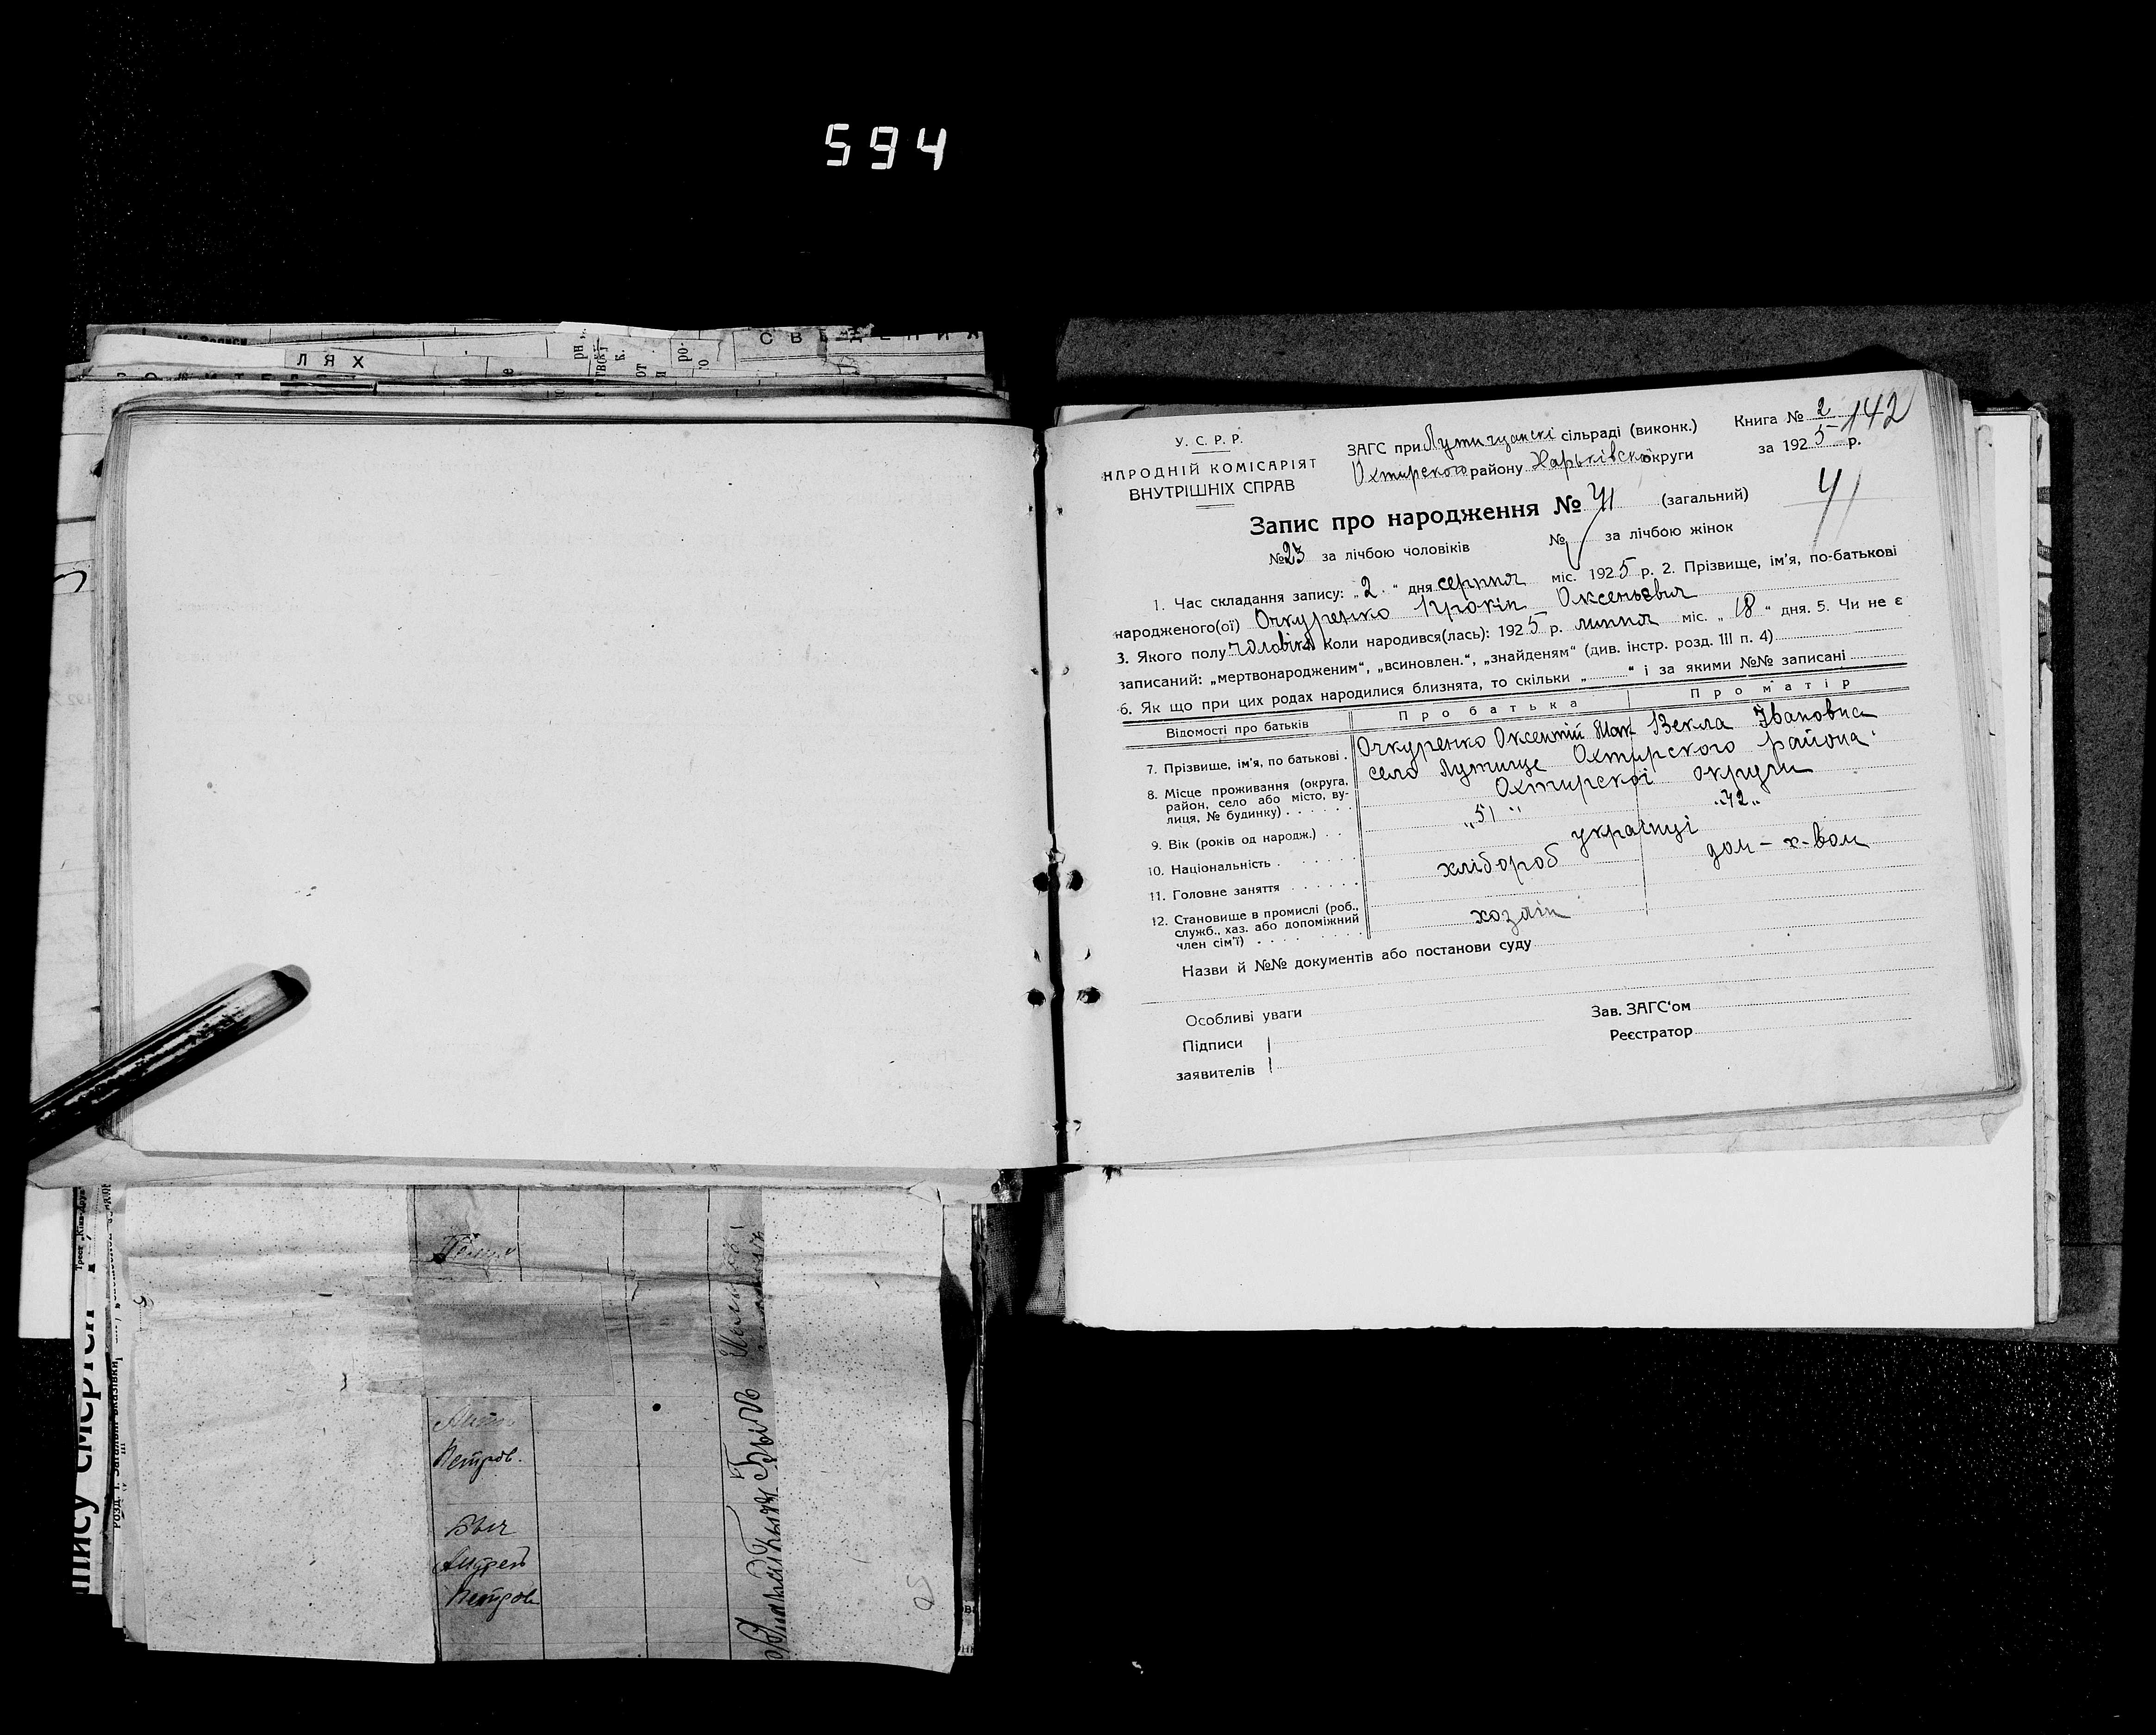 594
С В Е Д Е Н И Я
Л Я Х
У. С. Р. Р.
НАРОДНІЙ КОМІСАРІЯТ
ВНУТРІШНІХ СПРАВ
ЗАГС при Лутищанскі сільраді (виконк.)
Охтирского району Харьківскої округи
Книга № 2 142
за 1925 р.
Запис про народження № 41 (загальний)
41
№ 23 за лічбою чоловіків № за лічбою жінок
1. Час складання запису: „2“ дня серпня міс. 1925 р. 2. Прізвище, ім'я, по-батькові
народженого(ої) Очкуренко Прокіп Оксеньєвич
3. Якого полу чоловіка Коли народився(лась): 1925 р. липня міс. „18“ дня. 5. Чи не є
записаний: „мертвонародженим“, „всиновлен.“, „знайденям“ (див. інстр. розд. III п. 4)
6. Як що при цих родах народилися близнята, то скільки „ “ і за якими №№ записані
Відомості про батьків П р о б а т ь к а П р о м а т і р
7. Прізвище, ім'я, по батькові . Очкуренко Оксентій Мак Векла Івановна
8. Місце проживання (округа, село Лутище Охтирского района
район, село або місто, ву- Охтирскої округи
лиця, № будинку) . . . . .
9. Вік (років од народж.) . . „51“ „42„
10. Національність . . . . . . українці
11. Головне заняття . . . . . . хлібороб дом-х-вом
12. Становище в промислі (роб., хозяін
служб., хаз. або допоміжний
член сім'ї) . . . . . . . .
Назви й №№ документів або постанови суду
Особливі уваги
Зав. ЗАГС'ом
Підписи
Реєстратор
заявителів
Петров.
Быч
Андрей
Петров